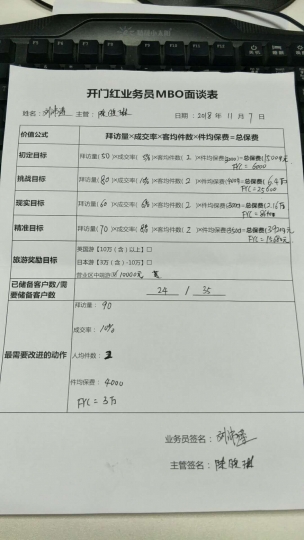 开门红业务员MBO面谈表
姓名: 主管: 日期: 2018 年 11 月 7 日
价值公式 拜访量×成交率×客均件数×件均保费=总保费
初定目标 拜访量( 50 )×成交率( 5% )×客均件数( 2 )×件均保费( 3000 )=总保费( 15000元
FYC = 6000
挑战目标 拜访量( 80 )×成交率( 10% )×客均件数( 2 )×件均保费( 4000 )=总保费( 6.4万
FYC = 25600
现实目标 拜访量( 60 )×成交率( 6% )×客均件数( 2 )×件均保费( 3000 )=总保费( 2.16万
FYC = 8640
精准目标 拜访量( 70 )×成交率( 8% )×客均件数( 2 )×件均保费( 3500 )=总保费(
旅游奖励目标 美国游【10万(含)以上】□
日本游【3万(含)-10万】□
营业区中旅游 10000元
已储备客户数/需要储备客户数 24 / 35
最需要改进的动作 拜访量: 90
成交率: 10%
人均件数: 2
件均保费: 4000
FYC = 3万
业务员签名:
主管签名: